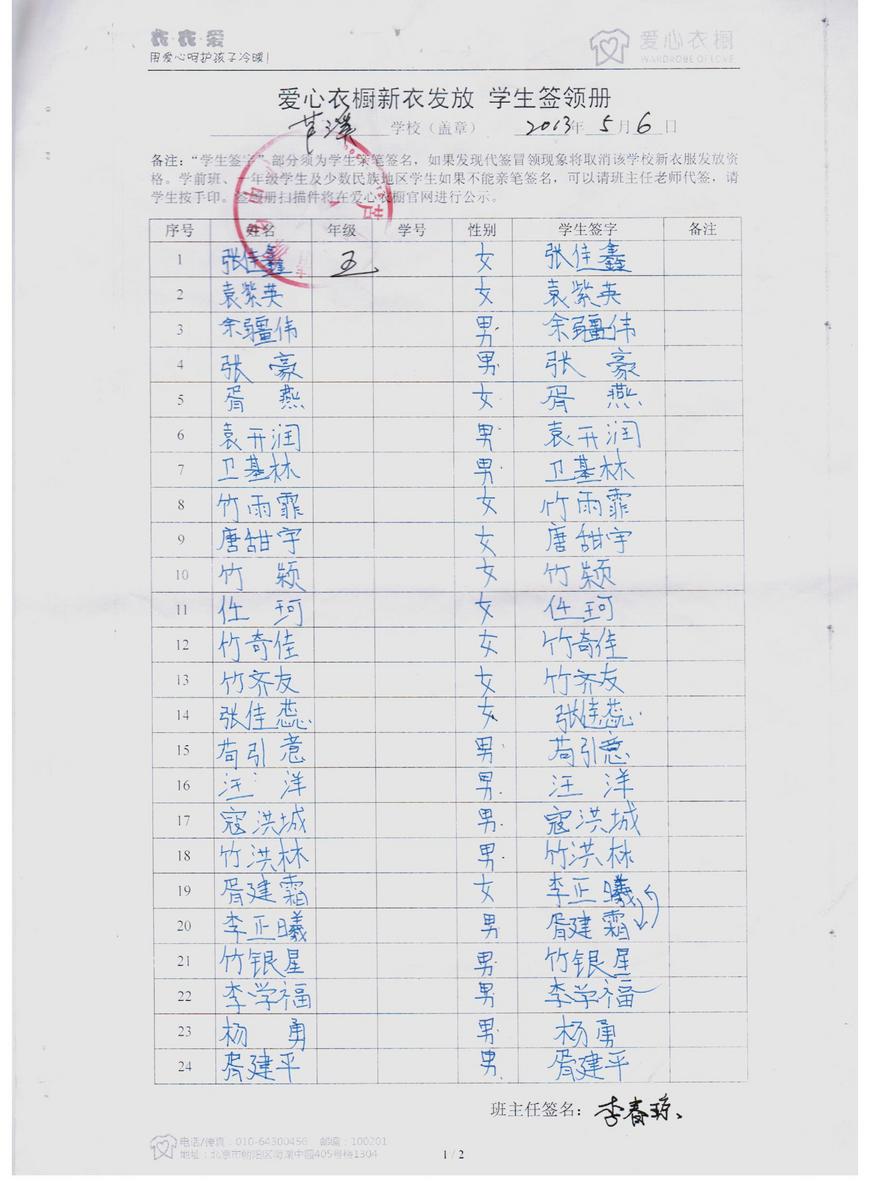 衣·衣·爱
用爱心呵护孩子冷暖!
爱心衣橱
WARDROBE OF LOVE
爱心衣橱新衣发放 学生签领册
芦溪 学校（盖章） 2013年 5月 6日
备注：“学生签字”部分须为学生亲笔签名，如果发现代签冒领现象将取消该学校新衣服发放资
格。学前班、一年级学生及少数民族地区学生如果不能亲笔签名，可以请班主任老师代签，请
学生按手印。签领册扫描件将在爱心衣橱官网进行公示。
序号 姓名 年级 学号 性别 学生签字 备注
1 张佳鑫 五 女 张佳鑫
2 袁紫英 女 袁紫英
3 余疆伟 男 余疆伟
4 张豪 男 张豪
5 胥燕 女 胥燕
6 袁开润 男 袁开润
7 卫基林 男 卫基林
8 竹雨霏 女 竹雨霏
9 唐甜宇 女 唐甜宇
10 竹颖 女 竹颖
11 仕珂 女 仕珂
12 竹奇佳 女 竹奇佳
13 竹齐友 女 竹齐友
14 张佳蕊 女 张佳蕊
15 苟引意 男 苟引意
16 汪洋 男 汪洋
17 寇洪城 男 寇洪城
18 竹洪林 男 竹洪林
19 胥建霜 女 李正曦
20 李正曦 男 胥建霜
21 竹银星 男 竹银星
22 李学福 男 李学福
23 杨勇 男 杨勇
24 胥建平 男 胥建平
班主任签名：李春琼
电话/传真：010-64300456 邮编：100201
1 / 2